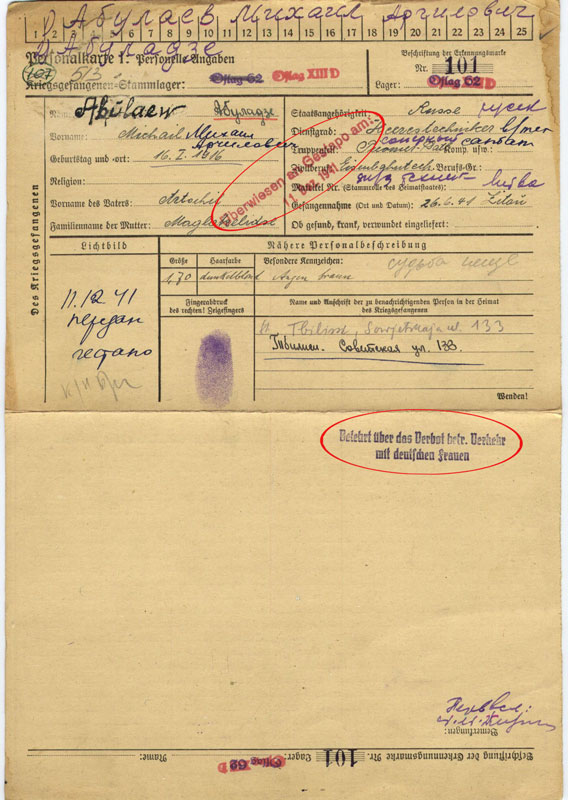 Абулаев Михаил Арчилович
1 2 3 4 5 6 7 8 9 10 11 12 13 14 15 16 17 18 19 20 21 22 23 24 25
Абуладзе
Personalkarte I: Personelle Angaben
Beschriftung der Erkennungsmarke
107 5/3
Nr. 101
Kriegsgefangenen-Stammlager: Oflag 62 Oflag XIII D
Lager: Oflag 62
Des Kriegsgefangenen
Name: Abulaew Абуладзе
Vorname: Michael Михаил
Арчилович
Geburtstag und -ort: 16.I.1916
Religion:
Vorname des Vaters: Artschil
Familienname der Mutter:
Staatsangehörigkeit: Russe русск
Dienstgrad: Heerestechniker
Truppenteil: Komp. usw.:
Zivilberuf: Berufs-Gr.:
Matrikel Nr. (Stammrolle des Heimatstaates): Литва
Gefangennahme (Ort und Datum): 26.6.41
Ob gesund, krank, verwundet eingeliefert:
Überwiesen an Gestapo am:
11. Dez. 1941
Lichtbild
Nähere Personalbeschreibung
Größe Haarfarbe Besondere Kennzeichen:
1.70 dunkelblond Augen braun
11.12.41
передан
гестапо
Fingerabdruck
des rechten! Zeigefingers
Name und Anschrift der zu benachrichtigenden Person in der Heimat
des Kriegsgefangenen
Tbilissi, Sowjetskaja ul. 133
Тбилиси. Советская ул. 133.
Wenden!
Belehrt über das Verbot betr. Verkehr
mit deutschen Frauen
Bemerkungen:
Beschriftung der Erkennungsmarke Nr. 101 Lager: Oflag 62 Name: